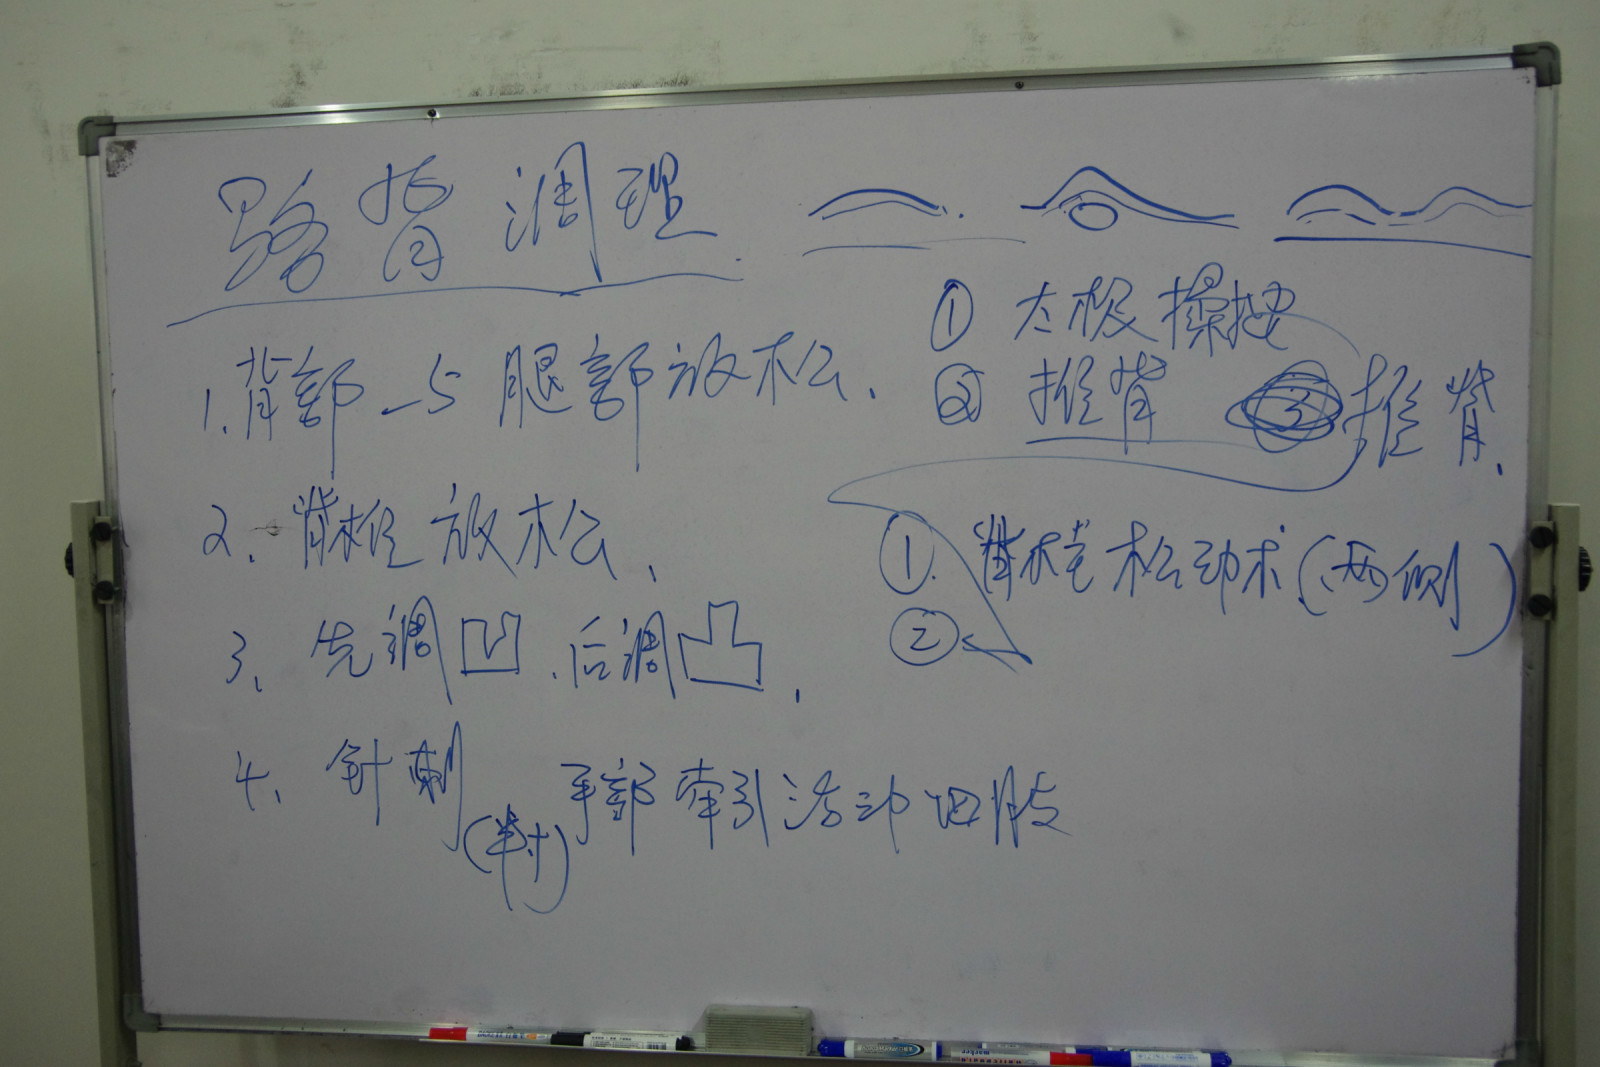 骆背调理
1. 背部与腿部放松.
2. 脊椎放松、
3、先调凹、后调凸、
4、针刺(对)手部牵引活动四肢
① 太极揉按
② 推背 ③ 推脊、
①. 脊椎松动术(两侧)
②